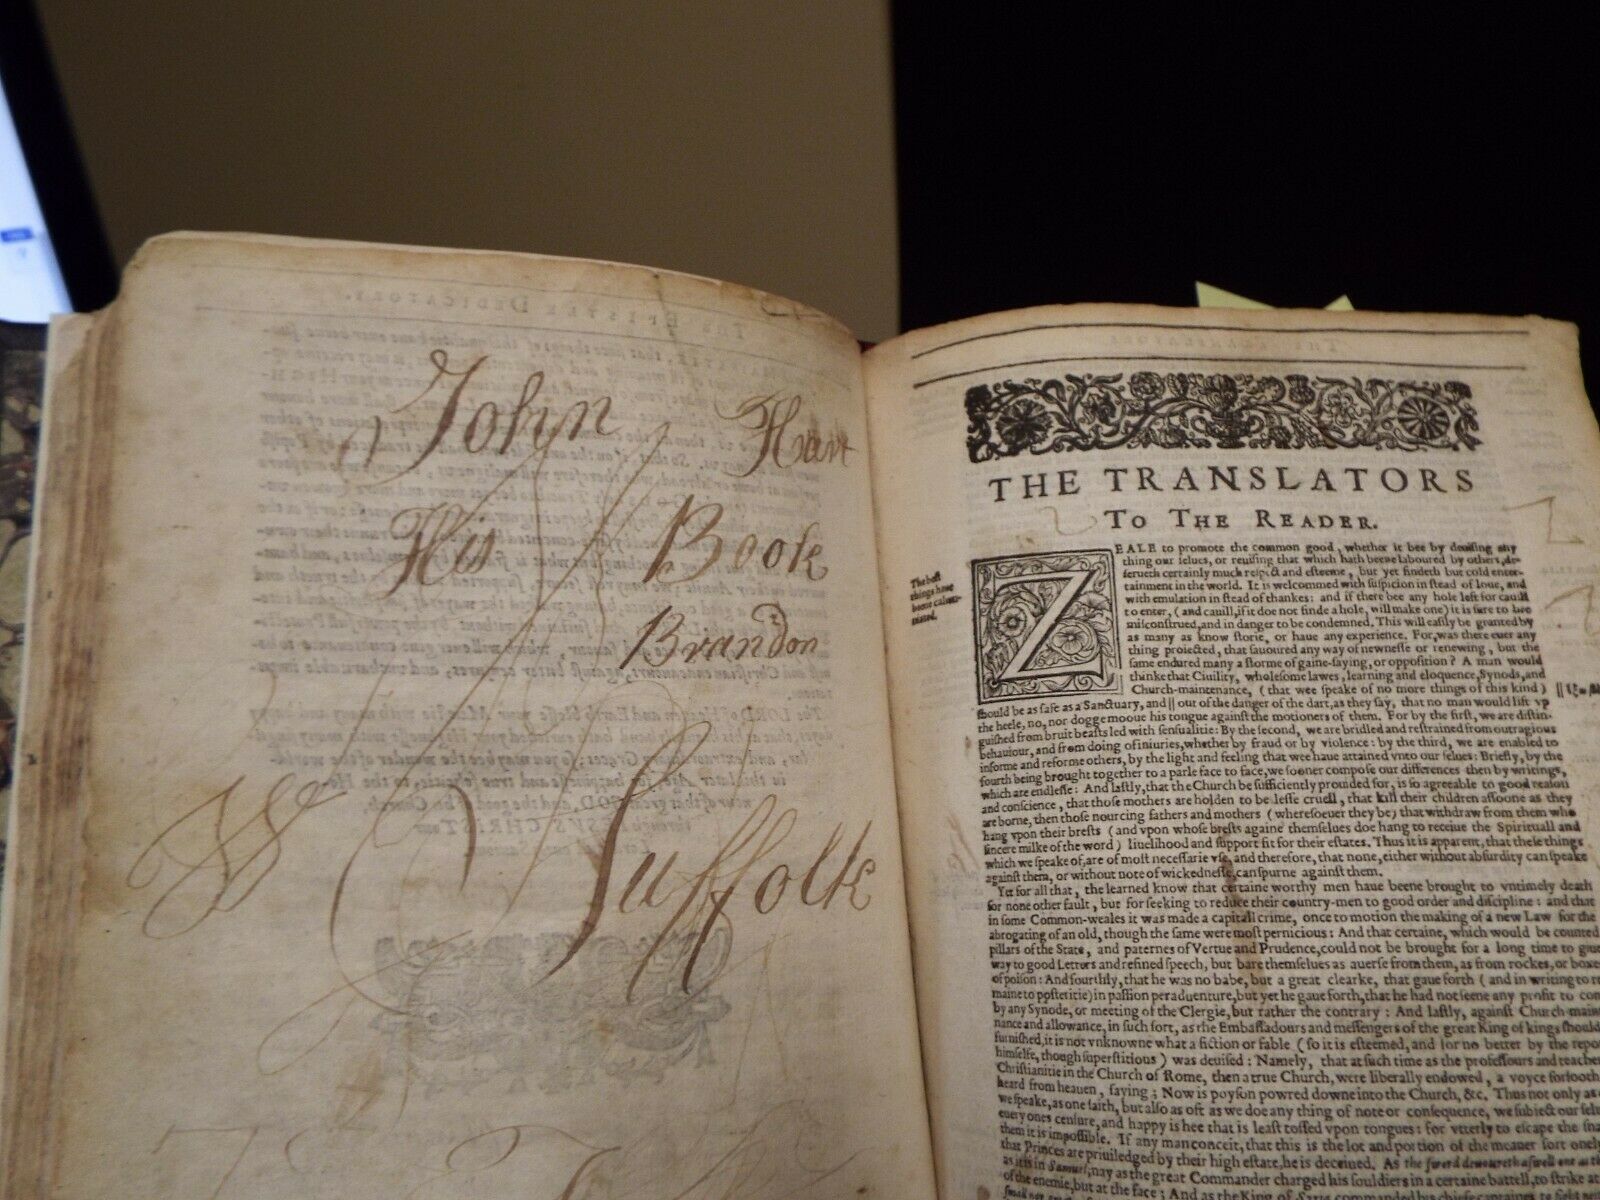 John Hart
His Book
Brandon
Suffolk
THE TRANSLATORS
TO THE READER.
The best
things haue
beene calum-
niated.
ZEALE to promote the common good, whether it bee by deuising any
thing our selues, or reuising that which hath beene laboured by others, de-
serueth certainly much respect and esteeme, but yet findeth but cold enter-
tainment in the world. It is welcommed with suspicion in stead of loue, and
with emulation in stead of thankes: and if there bee any hole left for cauill
to enter, (and cauill, if it doe not finde a hole, will make one) it is sure to bee
misconstrued, and in danger to be condemned. This will easily be granted by
as many as know storie, or haue any experience. For, was there euer any
thing proiected, that sauoured any way of newnesse or renewing, but the
same endured many a storme of gaine-saying, or opposition? A man would
thinke that Ciuility, wholesome lawes, learning and eloquence, Synods, and
Church-maintenance, (that wee speake of no more things of this kind)
should be as safe as a Sanctuary, and || out of the danger of the dart, as they say, that no man would lift vp
the heele, no, nor dogge mooue his tongue against the motioners of them. For by the first, we are distin-
guished from bruit beasts led with sensualitie: By the second, we are bridled and restrained from outragious
behauiour, and from doing of iniuries, whether by fraud or by violence: by the third, we are enabled to
informe and reforme others, by the light and feeling that wee haue attained vnto our selues: Briefly, by the
fourth being brought together to a parle face to face, we sooner compose our differences then by writings,
which are endlesse: And lastly, that the Church be sufficiently prouided for, is so agreeable to good reason
and conscience, that those mothers are holden to be lesse cruell, that kill their children assoone as they
are borne, then those nourcing fathers and mothers (wheresoeuer they be) that withdraw from them who
hang vpon their brests (and vpon whose brests againe themselues doe hang to receiue the Spirituall and
sincere milke of the word) liuelihood and support fit for their estates. Thus it is apparent, that these things
which we speake of, are of most necessarie vse, and therefore, that none, either without absurdity can speake
against them, or without note of wickednesse, can spurne against them.
Yet for all that, the learned know that certaine worthy men haue beene brought to vntimely death
for none other fault, but for seeking to reduce their country-men to good order and discipline: and that
in some Common-weales it was made a capitall crime, once to motion the making of a new Law for the
abrogating of an old, though the same were most pernicious: And that certaine, which would be counted
pillars of the State, and paternes of Vertue and Prudence, could not be brought for a long time to giue
way to good Letters and refined speech, but bare themselues as auerse from them, as from rockes, or boxes
of poison: And fourthly, that he was no babe, but a great clearke, that gaue forth (and in writing to re
maine to posteritie) in passion peraduenture, but yet he gaue forth, that he had not seene any profit to com
by any Synode, or meeting of the Clergie, but rather the contrary: And lastly, against Church-maint
nance and allowance, in such sort, as the Embassadours and messengers of the great King of kings should
furnished, it is not vnknowne what a fiction or fable (so it is esteemed, and for no better by the repor
himselfe, though superstitious) was deuised: Namely, that at such time as the professours and teacher
Christianitie in the Church of Rome, then a true Church, were liberally endowed, a voyce forsooth
heard from heauen, saying; Now is poyson powred downe into the Church, &c. Thus not only as o
we speake, as one saith, but also as oft as we doe any thing of note or consequence, we subiect our selu
euery ones censure, and happy is hee that is least tossed vpon tongues: for vtterly to escape the sna
them it is impossible. If any man conceit, that this is the lot and portion of the meaner sort onely
that Princes are priuiledged by their high estate, he is deceiued. As the sword deuoureth aswell one as th
as it is in Samuel; nay as the great Commander charged his souldiers in a certaine battell, to strike at
of the enemie, but at the face; And as the King of Syria commanded his chiefe captaines